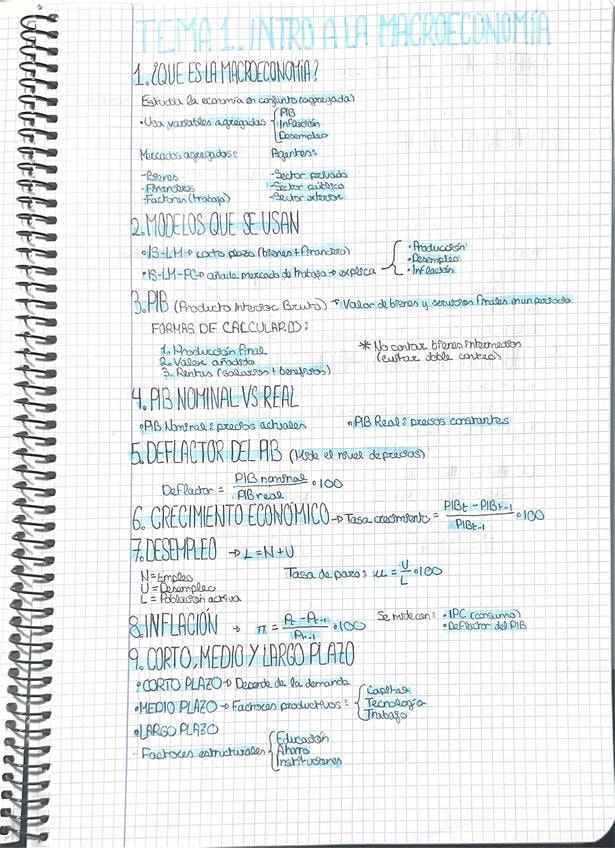 TEMA 1. INTRO A LA MACROECONOMÍA
1. ¿QUE ES LA MACROECONOMÍA?
Estudia la economía en conjunto (agregada)
•Usa variables agregadas { PIB
Inflación
Desempleo
Mercados agregados: Agentes:
-Bienes -Sector privado
-Financiero -Sector público
-Factores (trabajo) -Sector exterior
2. MODELOS QUE SE USAN
•IS-LM→ corto plazo (bienes + financiero)
•IS-LM-PC→ añade mercado de trabajo → explica { •Producción
•Desempleo
•Inflación
3. PIB (Producto Interior Bruto) → Valor de bienes y servicios finales en un periodo
FORMAS DE CALCULARLO:
1. Producción final
2. Valor añadido
3. Rentas (salarios + beneficios)
* No contar bienes intermedios
(evitar doble conteo)
4. PIB NOMINAL VS REAL
•PIB Nominal: precios actuales •PIB Real: precios constantes
5. DEFLACTOR DEL PIB (Mide el nivel de precios)
Deflactor = PIB nominal / PIB real • 100
6. CRECIMIENTO ECONÓMICO → Tasa crecimiento = PIBt - PIBt-1 / PIBt-1 • 100
7. DESEMPLEO → L = N + U
N = Empleo
U = Desempleo
L = Población activa
Tasa de paro: u = U / L • 100
8. INFLACIÓN → π = Pt - Pt-1 / Pt-1 • 100
Se mide con: •IPC (consumo)
•Deflactor del PIB
9. CORTO, MEDIO Y LARGO PLAZO
•CORTO PLAZO → Depende de la demanda
•MEDIO PLAZO → Factores productivos: { Capital
Tecnología
Trabajo
•LARGO PLAZO
- Factores estructurales { Educación
Ahorro
Instituciones